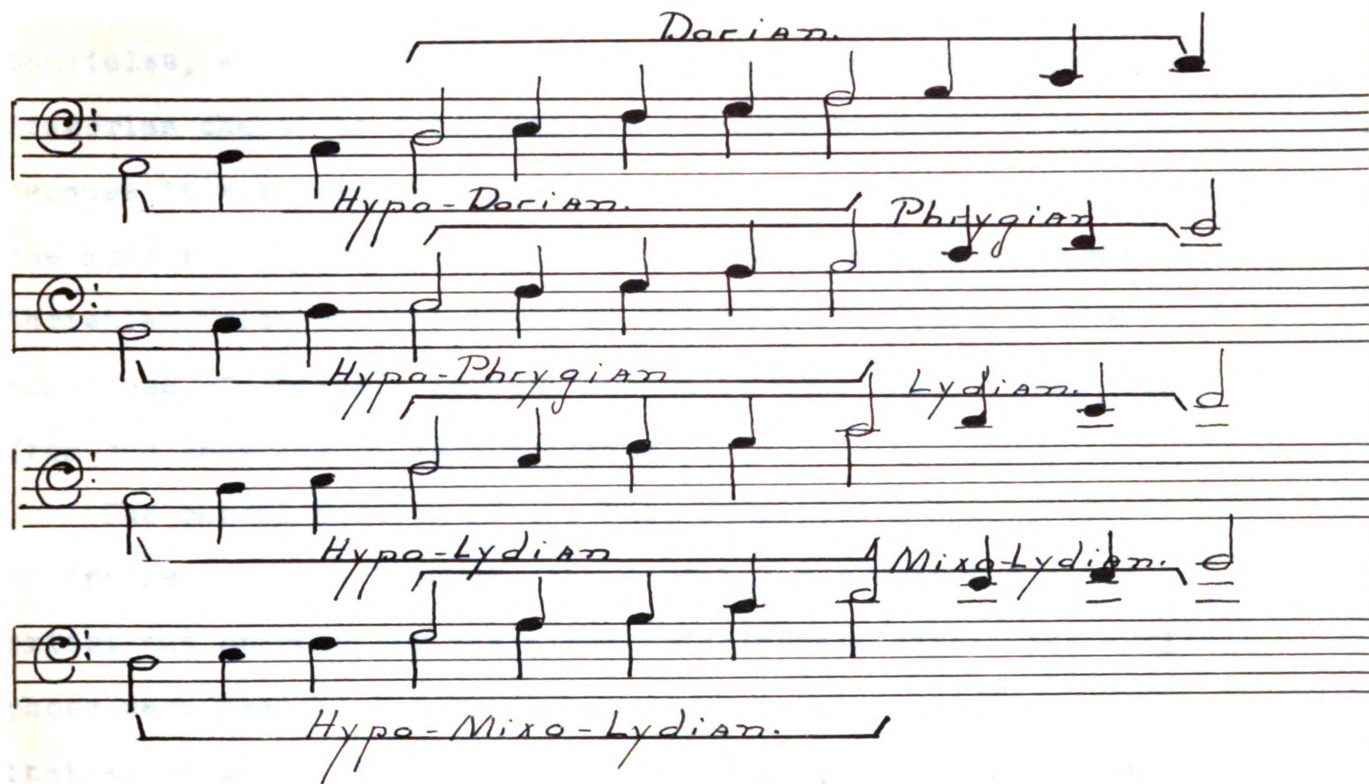 Dorian.
Hypo-Dorian. Phrygian
Hypo-Phrygian Lydian.
Hypo-Lydian Mixo-Lydian.
Hypo-Mixo-Lydian.